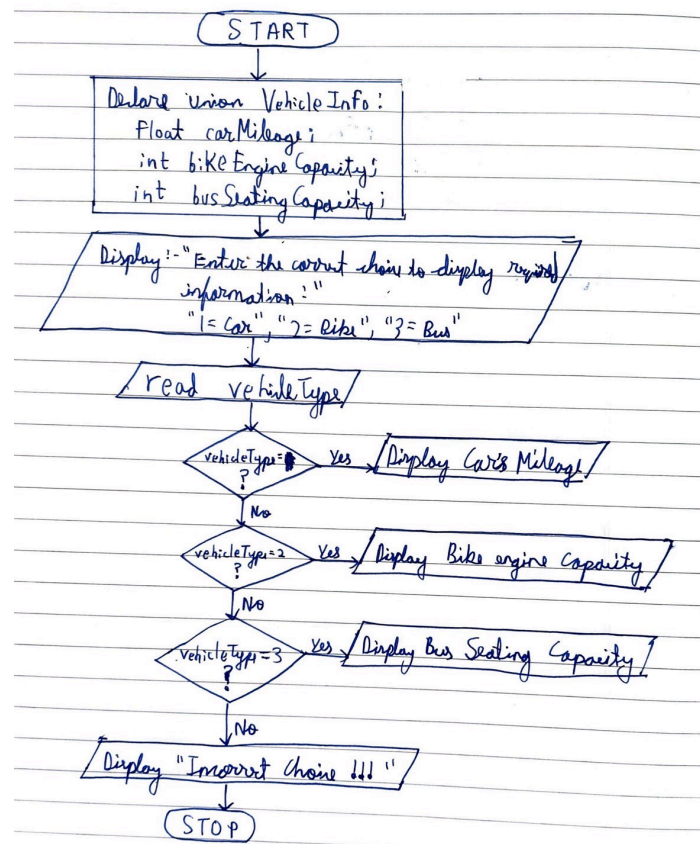 START
Declare union VehicleInfo:
float carMileage;
int bikeEngineCapacity;
int busSeatingCapacity;
Display:-"Enter the correct choice to display required
information:"
"1= Car", "2= Bike", "3= Bus"
read vehicleType
vehicleType=
?
Yes
Display Car's Mileage
No
vehicleType=2
?
Yes
Display Bike engine Capacity
No
vehicleType=3
?
Yes
Display Bus Seating Capacity
No
Display "Incorrect Choice !!!"
STOP